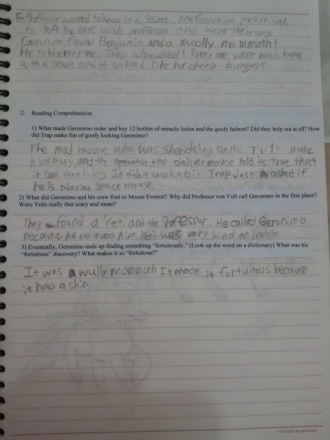 The Professor wanted to keep in a secret, and Geronimo promised,
to left the cave with professor and went there
Geronimo found Benjamin and a woolly mammoth!
He called every one. They were shocked! Every one went back home
with a cave and he smiled like hot cheese burgers.
2. Reading Comprehension
1) What made Geronimo order and buy 12 bottles of miracle lotion and the goofy helmet? Did they help out at all? How
did Trap make fun of goofy looking Geronimo?
The mad mouse who was shrieking on the TV to make
him buy and the operator and deliver mouse told its true that
it was working. It didn't work a bit. Trap Just asked if
he is playing space mouse.
2) What did Geronimo and his crew find in Mouse Everest? Why did Professor von Volt call Geronimo in the first place?
Were Yetis really that scary and mean?
They found a Yeti and the Professor. He called Geronimo
because he believed him. Yeti was very kind an inside.
3) Eventually, Geronimo ends up finding something "fortuitously." (Look up the word on a dictionary) What was his
"fortuitous" discovery? What makes it so "fortuitous?"
It was a wully mammoth It made it fortuitous because
it had a skin